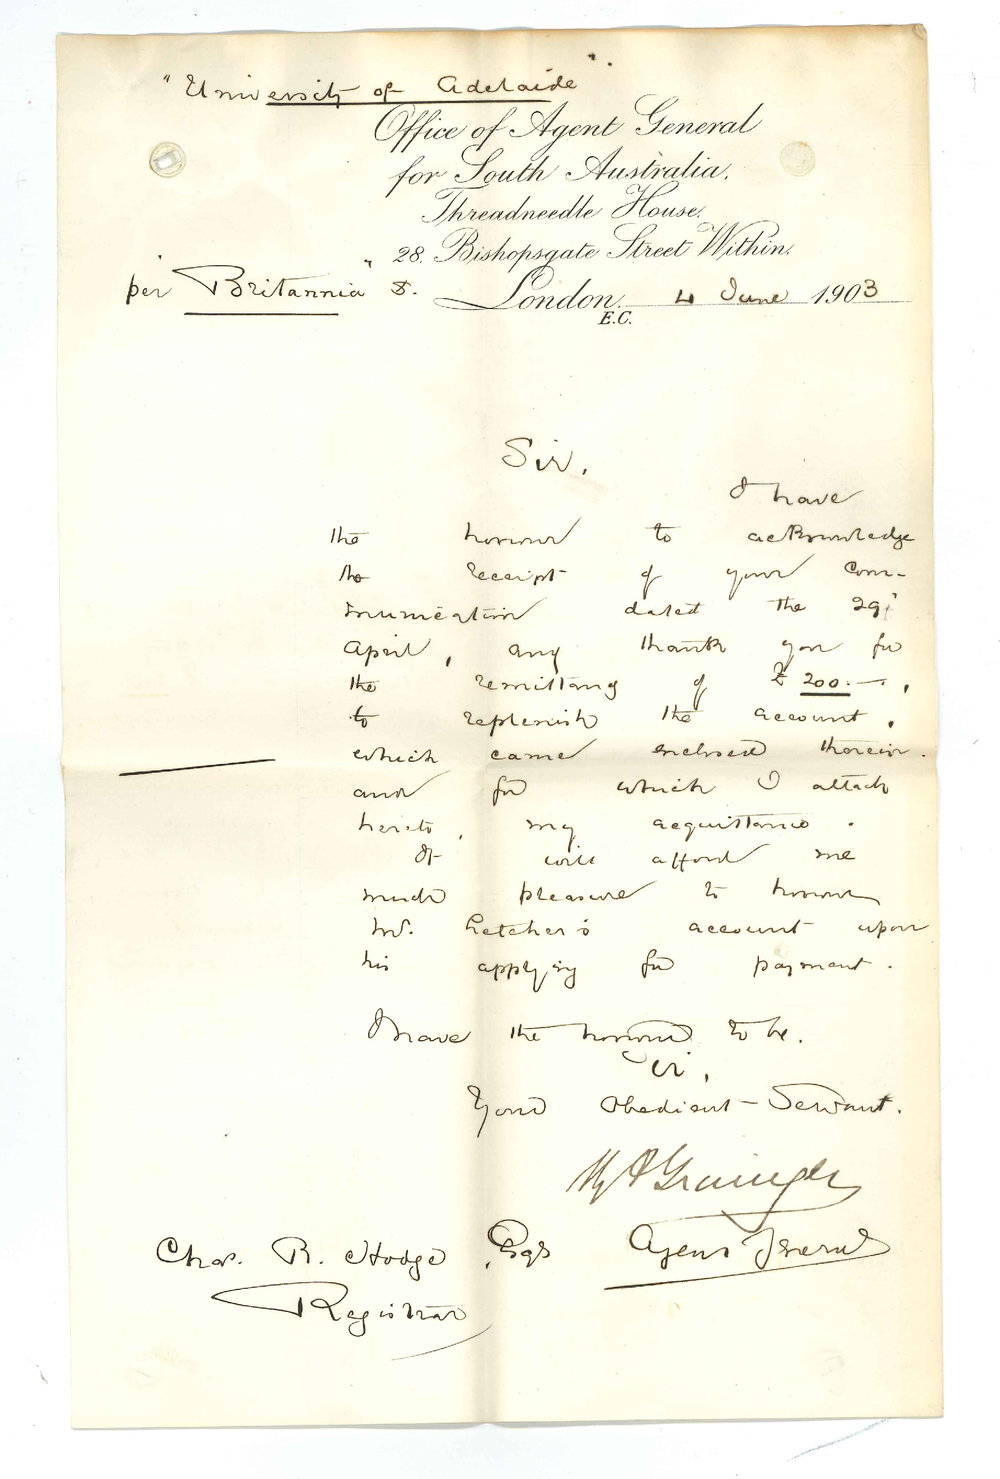 "University of Adelaide".
Office of Agent General
for South Australia,
Threadneedle House,
28, Bishopsgate Street Within,
per "Britannia"
London, 4 June 1903
E.C.
Sir,
I have
the honour to acknowledge
the receipt of your com-
munication dated the 29
April, any thank you for
the remittance of £200.—,
to replenish the account,
which came enclosed therein.
and for which I attach
hereto, my acquittance.
It will afford me
much pleasure to honour
Mr. Letcher's account upon
his applying for payment.
I have the honour to be.
Sir,
Your Obedient Servant.
Grainger
Agent General
Chas. R. Hodge, Esqr
Registrar